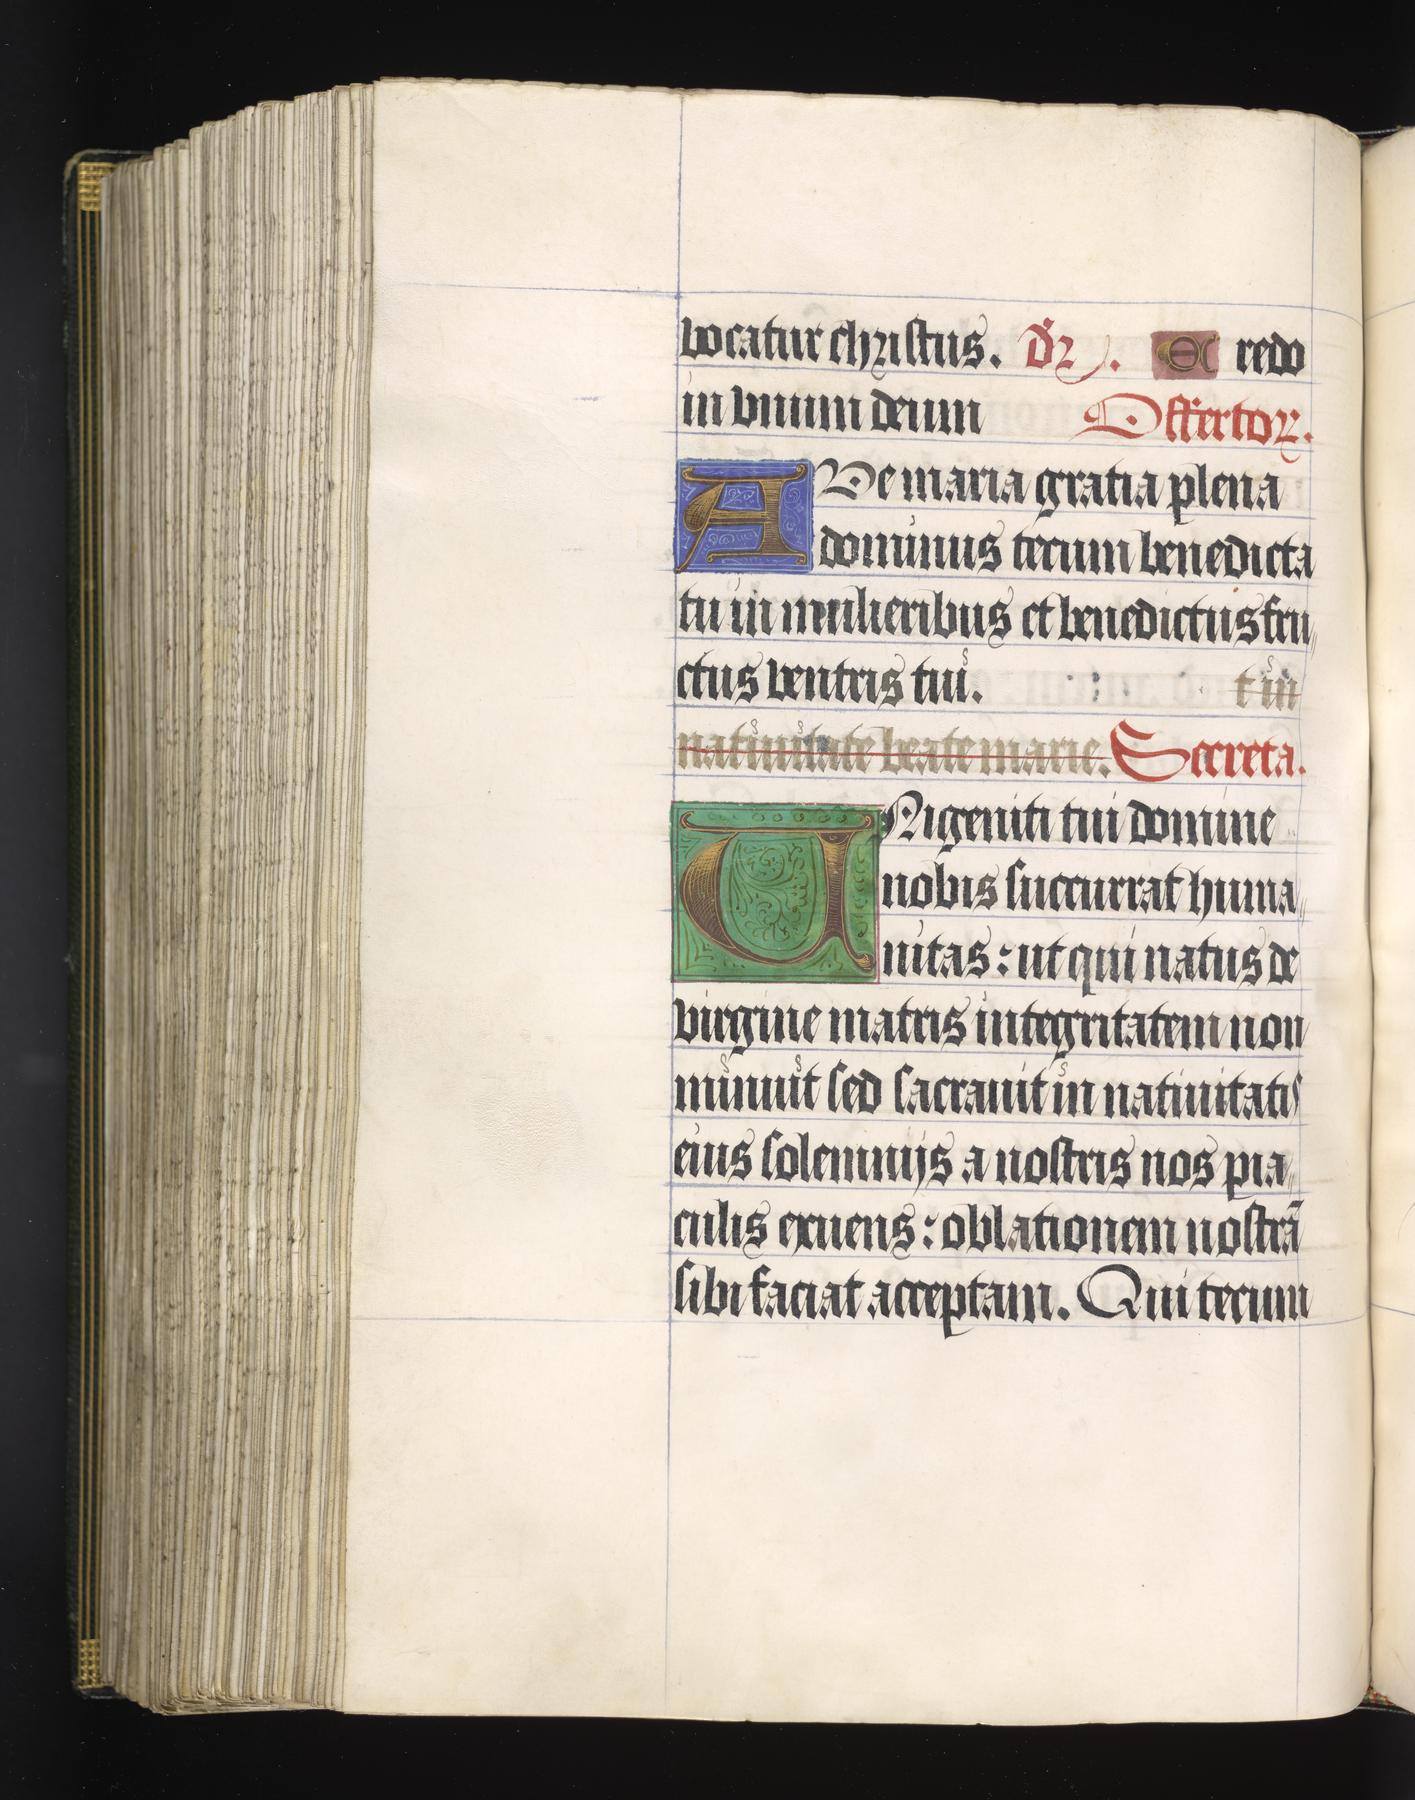 vocatur christus. dr. Credo
in vnum deum Offertor.
AVe maria gratia plena
dominus tecum benedicta
tu in mulieribus et benedictus fru
ctus ventris tui. t in
natiuitate beate marie. Secreta.
UNigeniti tui domine
nobis succurrat huma
nitas: ut qui natus de
virgine matris integritatem non
minuit sed sacrauit in natiuitatis
eius solemnijs a nostris nos pia
culis exuens: oblationem nostrā
sibi faciat acceptam. Qui tecum